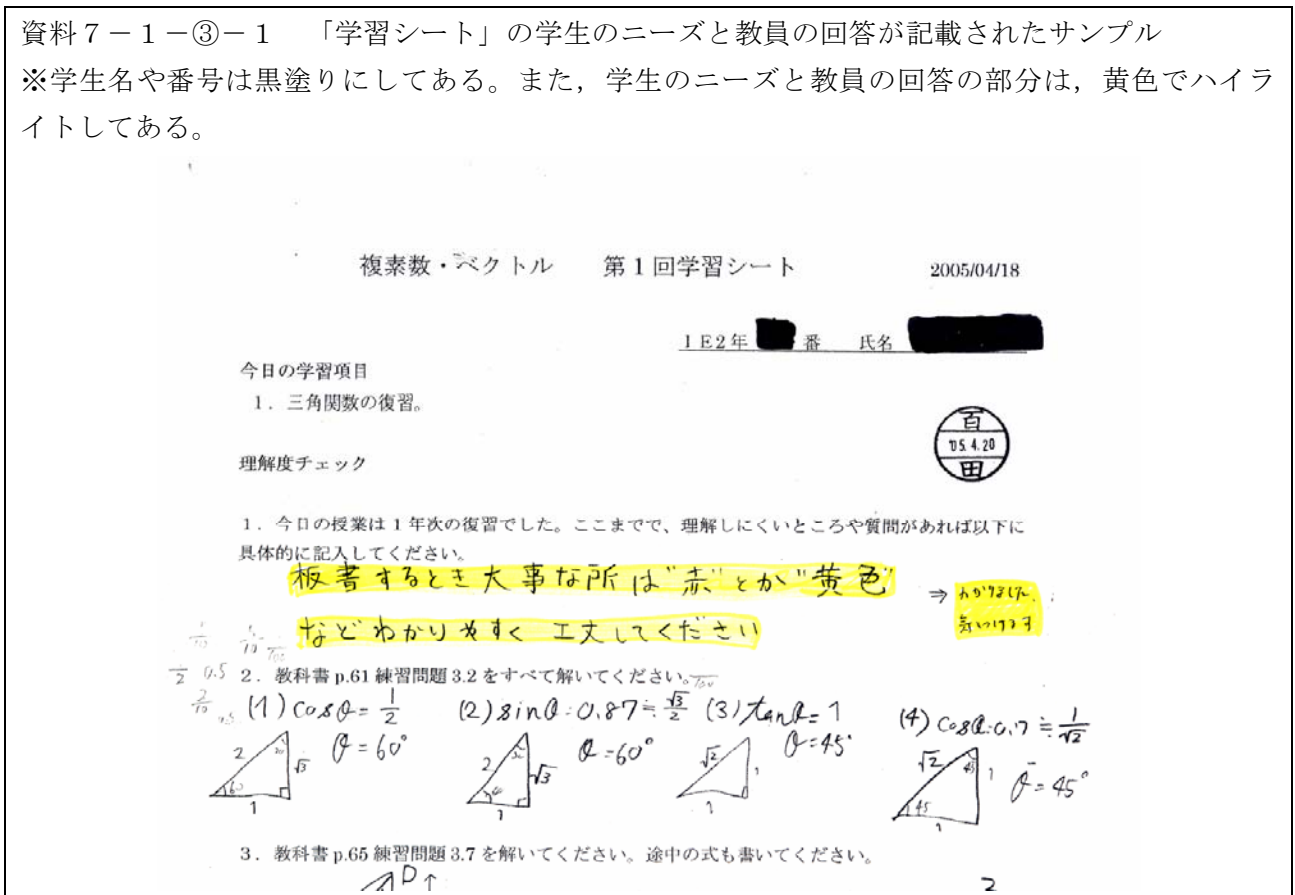 資料7-1-③-1 「学習シート」の学生のニーズと教員の回答が記載されたサンプル
※学生名や番号は黒塗りにしてある。また,学生のニーズと教員の回答の部分は,黄色でハイラ
イトしてある。
複素数・ベクトル 第1回学習シート 2005/04/18
1E2年 番 氏名
今日の学習項目
1.三角関数の復習。
百
'05.4.20
田
理解度チェック
1.今日の授業は1年次の復習でした。ここまでで、理解しにくいところや質問があれば以下に
具体的に記入してください。
板書するとき大事な所は"赤"とか"黄色"
などわかりやすく工夫してください
⇒ わかりました、
気をつけます
2.教科書p.61練習問題3.2をすべて解いてください。
(1) cosθ=1/2 (2) sinθ=0.87≒√3/2 (3) tanθ=1 (4) cosθ=0.7≒1/√2
θ=60° θ=60° θ=45° θ=45°
2 √3 60 1 2 √3 1 √2 1 1 √2 45 1 45 1
3.教科書p.65練習問題3.7を解いてください。途中の式も書いてください。
D